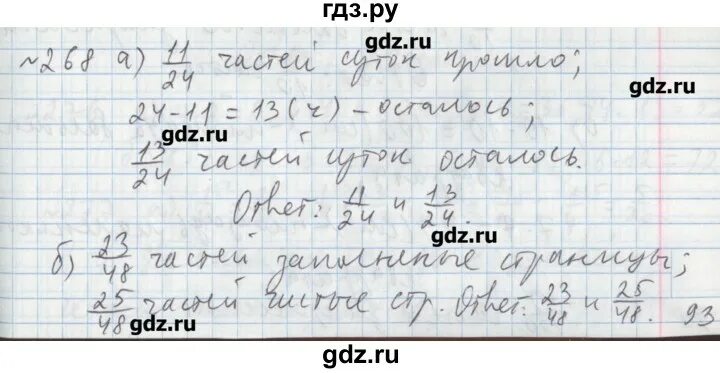 гдз.ру
№268 а) 11/24 частей суток прошло;
gdz.ru
gdz.ru
24-11=13(ч) - осталось;
gdz.ru
13/24 частей суток осталось.
gdz.ru
Ответ: 11/24 и 13/24.
gdz.ru
б) 23/48 частей заполненые страницы;
25/48 частей чистые стр. Ответ: 23/48 и 25/48. 93
gdz.ru
gdz.ru
gdz.ru